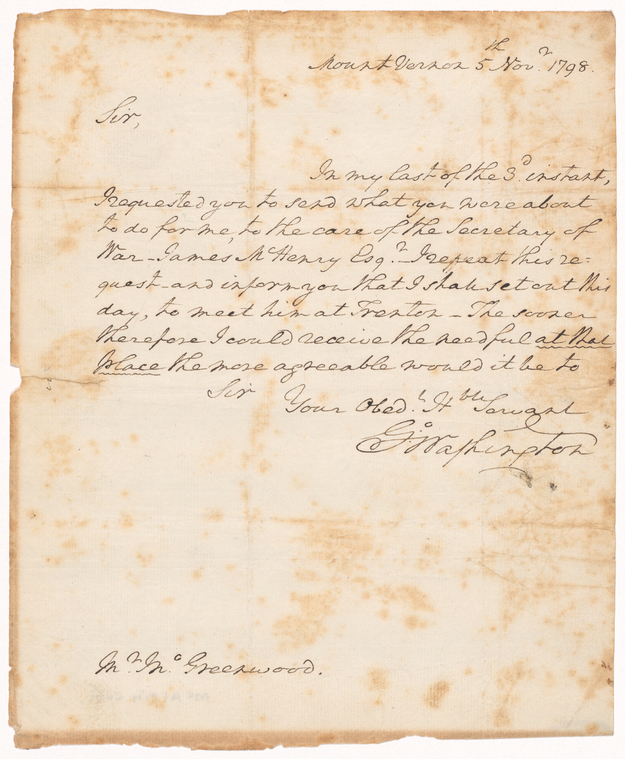 Mount Vernon 5th Novr. 1798.
Sir,
In my last of the 3d. instant,
I requested you to send what you were about
to do for me, to the care of the Secretary of
War – James McHenry Esqr. – I repeat this re=
quest – and inform you that I shall set out this
day, to meet him at Trenton – The sooner
therefore I could receive the needful at that
place the more agreeable would it be to
Sir Your Obedt. Hble Servant
Go: Washington
Mr. Jno. Greenwood.